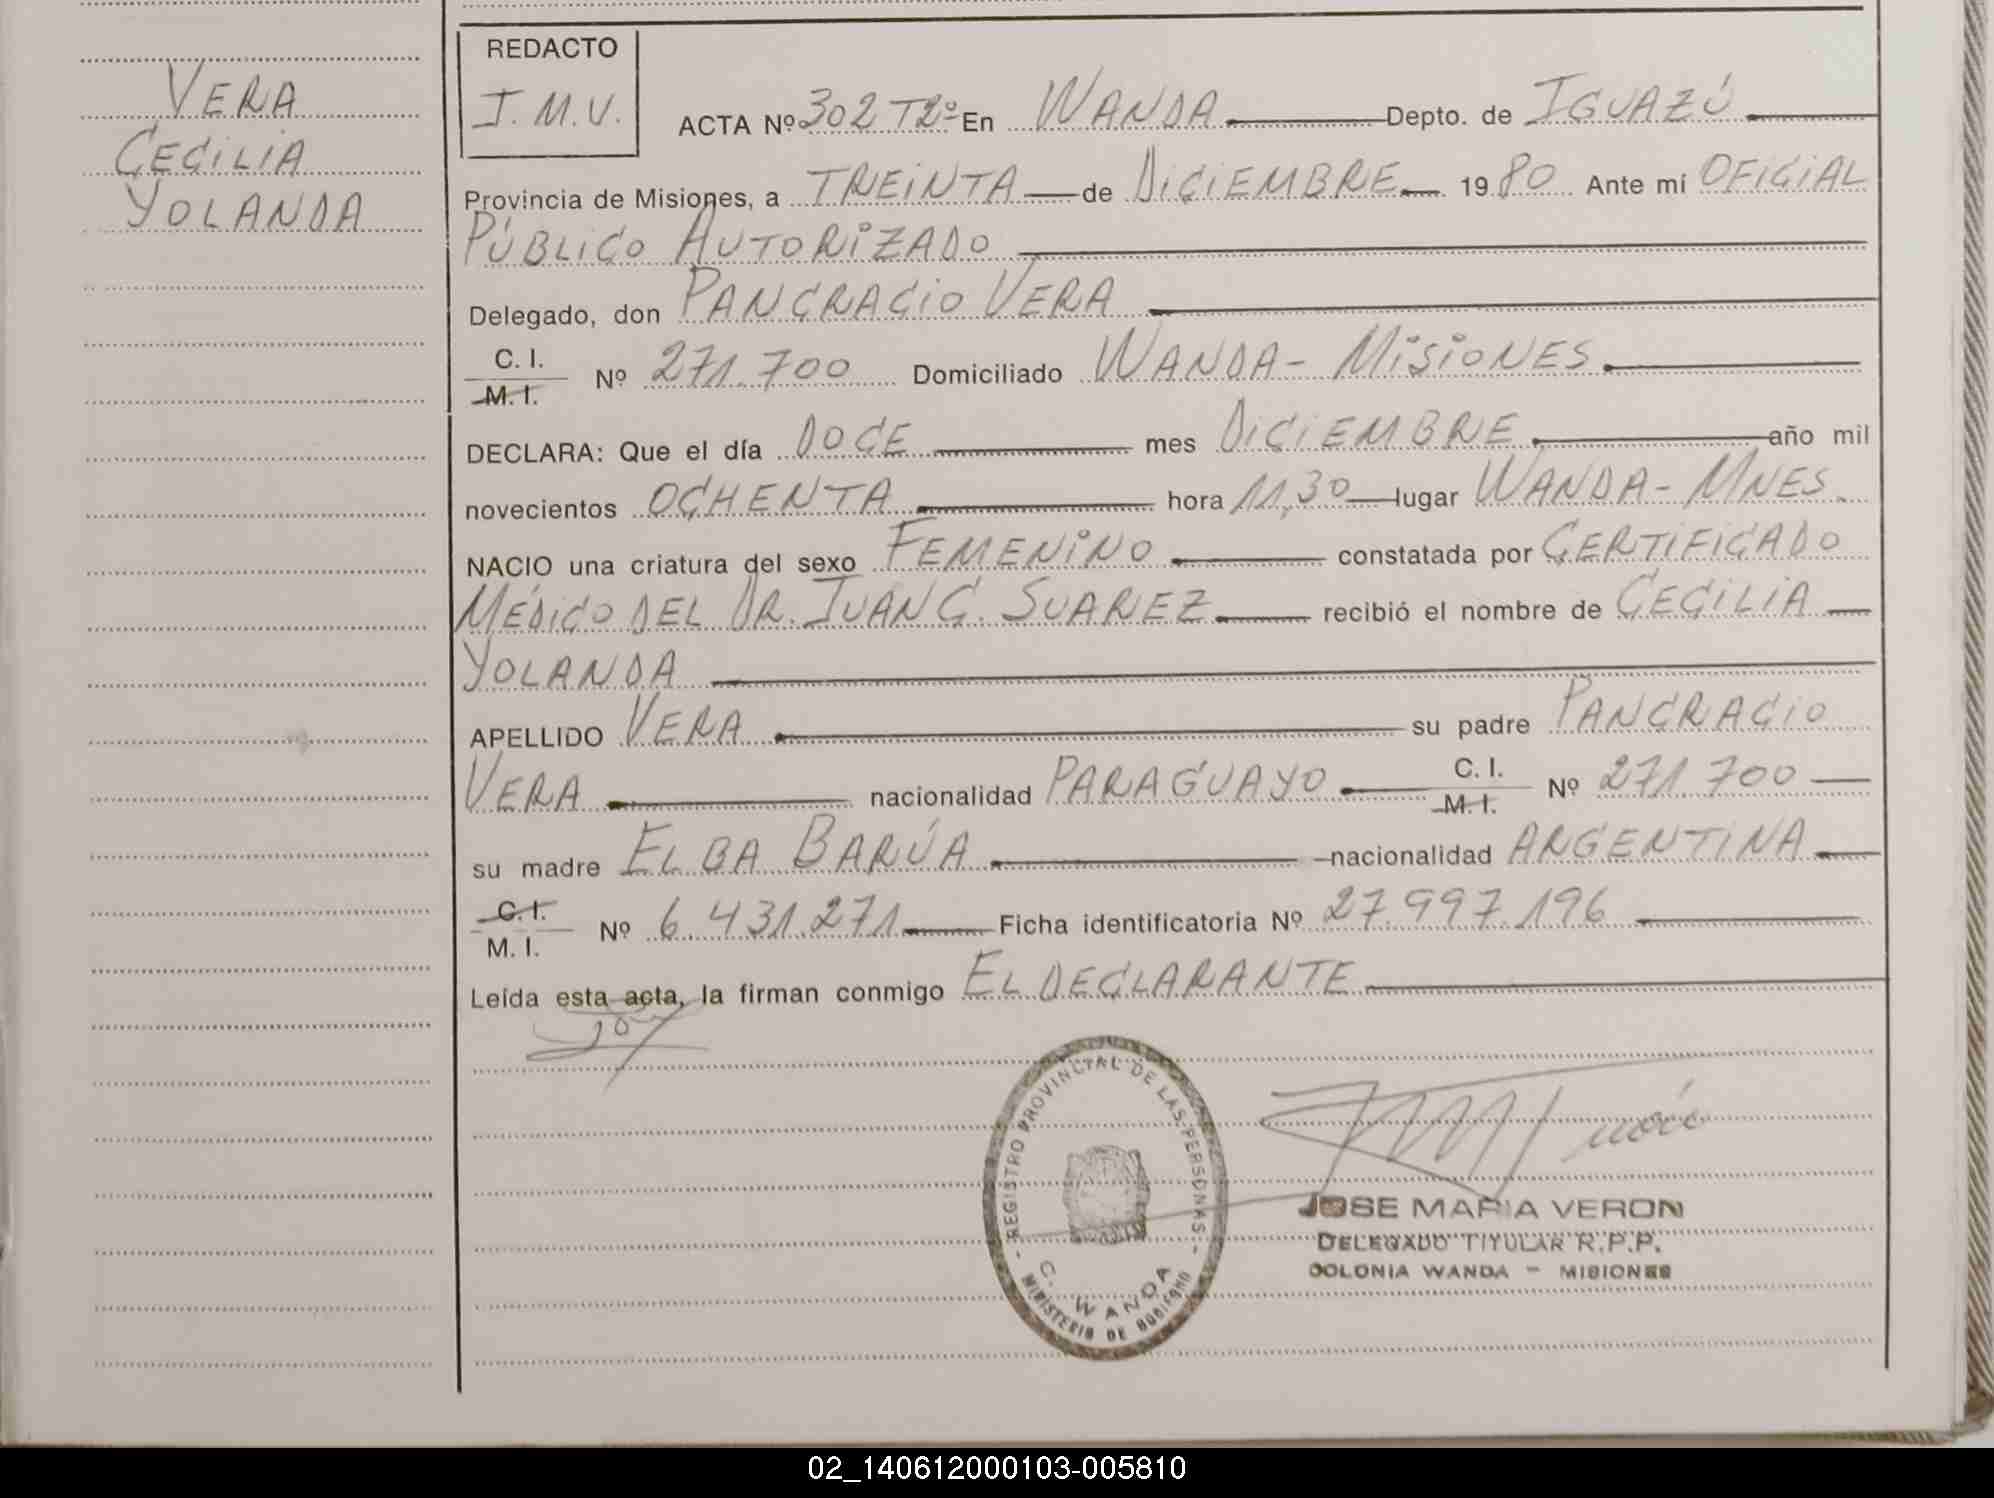 VERA
CECILIA
YOLANDA
REDACTO
J. M. V.
ACTA Nº 302 T2º En WANDA Depto. de IGUAZÚ
Provincia de Misiones, a TREINTA de DICIEMBRE 1980 Ante mí OFICIAL
PÚBLICO AUTORIZADO
Delegado, don PANCRACIO VERA
C. I.
M. I. Nº 271.700 Domiciliado WANDA - MISIONES
DECLARA: Que el día DOCE mes DICIEMBRE año mil
novecientos OCHENTA hora 11,30 lugar WANDA - MNES.
NACIO una criatura del sexo FEMENINO constatada por CERTIFICADO
MÉDICO DEL DR. JUAN C. SUAREZ recibió el nombre de CECILIA
YOLANDA
APELLIDO VERA su padre PANCRACIO
VERA nacionalidad PARAGUAYO C. I. M. I. Nº 271.700
su madre ELBA BARÚA nacionalidad ARGENTINA
C. I.
M. I. Nº 6.431.271 Ficha identificatoria Nº 27.997.196
Leída esta acta, la firman conmigo EL DECLARANTE
- REGISTRO PROVINCIAL DE LAS PERSONAS -
C. WANDA
MINISTERIO DE GOBIERNO
JOSE MARIA VERON
DELEGADO TITULAR R.P.P.
COLONIA WANDA - MISIONES
02_140612000103-005810